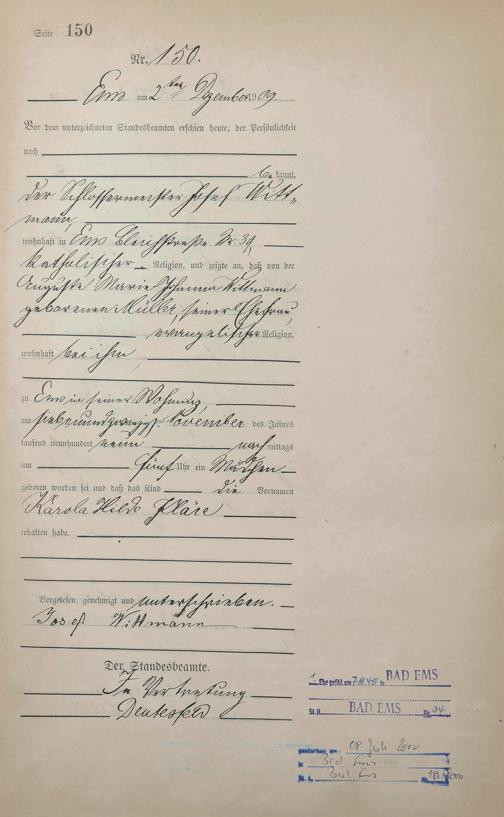 Seite 150
Nr. 150.
Ems am 2ten Dezember 1909.
Vor dem unterzeichneten Standesbeamten erschien heute, der Persönlichkeit
nach
bekannt,
der Schlossermeister Josef Witt-
mann,
wohnhaft in Ems Bleichstraße Nr. 39,
katholischer Religion, und zeigte an, daß von der
Auguste Marie Johanna Wittmann
geborenen Müller, seiner Ehefrau,
evangelischer Religion,
wohnhaft bei ihm,
zu Ems in seiner Wohnung,
am siebenundzwanzigsten November des Jahres
tausend neunhundert neun nachmittags
um fünf Uhr ein Mädchen
geboren worden sei und daß das Kind die Vornamen
Karola Hilda Kläre
erhalten habe.
Vorgelesen, genehmigt und unterschrieben.
Josef Wittmann
Der Standesbeamte.
In Vertretung
1. Ehe geschl. am in BAD EMS
St. A. BAD EMS Nr. 34
gestorben am: 08. Juli 2000
in Bad Ems
St. A. Bad Ems Nr.